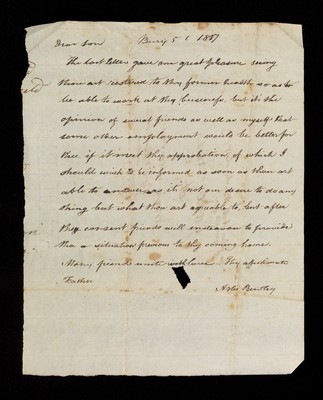 Dear Son Bury 5 1 1817
The last letter gave me great pleasure seeing
thou art restored to thy former health so as to
be able to work at thy business, but its the
opinion of sweral friends as well as myself that
some other employment would be better for
thee if it meet thy approbation of which I
should wish to be informed as soon as thou art
able to answer as its not our desire to do any
thing but what thou art agreable to, but after
thy consent friends will endeavour to provide
thee a situation previous to thy coming home
Many friends unite with love Thy affectionate
Father
Bentley